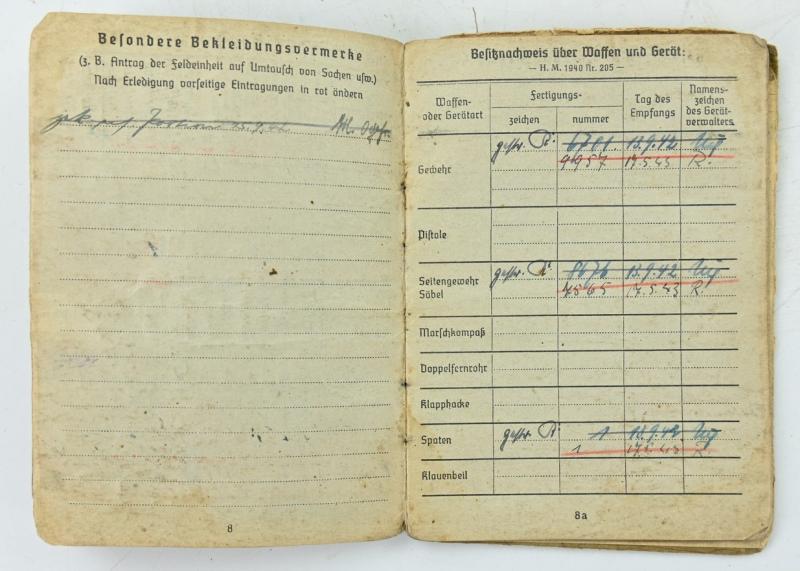 Besondere Bekleidungsvermerke
(z. B. Antrag der Feldeinheit auf Umtausch von Sachen usw.)
Nach Erledigung vorseitige Eintragungen in rot ändern
8
Besitznachweis über Waffen und Gerät:
— H. M. 1940 Nr. 205 —
Waffen- oder Gerätart
Fertigungs-
zeichen nummer
Tag des Empfangs
Namenszeichen des Gerätverwalters
gestr. R. 6701 13.9.42
Gewehr 9957 17.5.43 R.
Pistole
gestr. R. 8676 13.9.42
Seitengewehr
Säbel 7565 17.5.43 R.
Marschkompaß
Doppelfernrohr
Klapphacke
Spaten gestr. R. 1 13.9.42
1 17.5.43 R.
Klauenbeil
8a